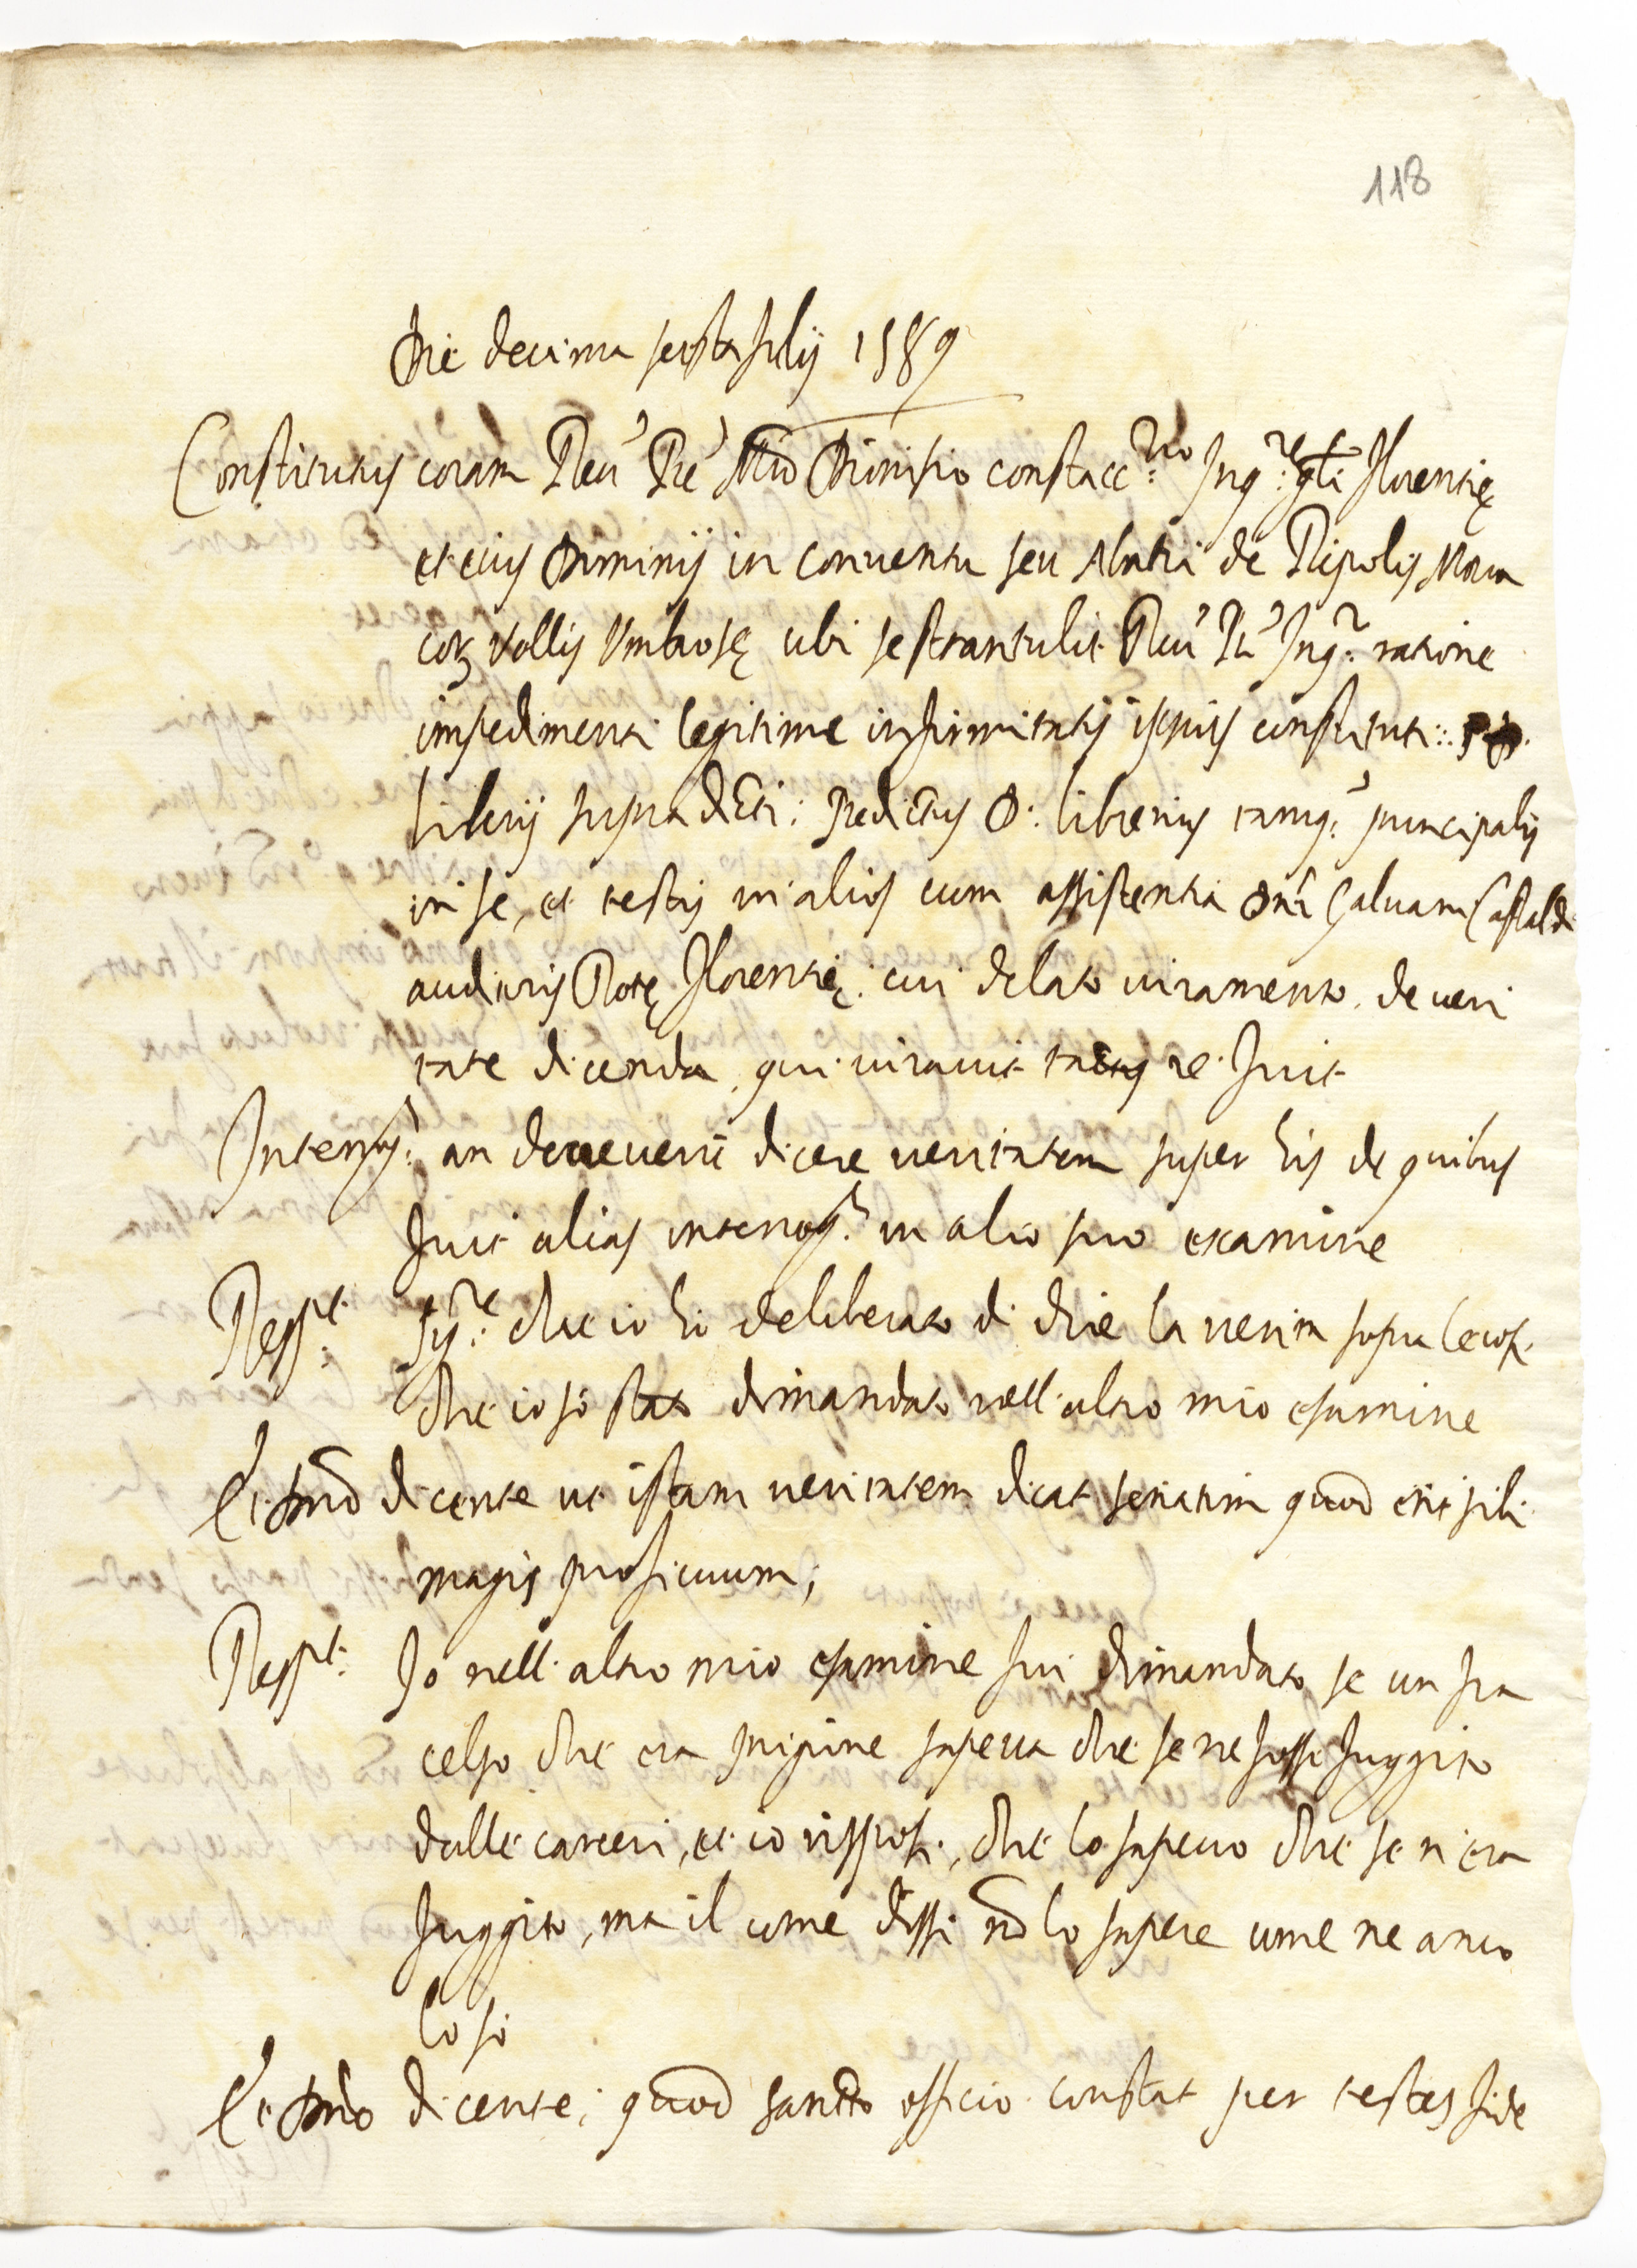 118
Die decima sexta Julij 1589
Constitutus coram Reu' Pre' Mro Dionisio constacc.rio Inq.re gli Florentię
et eius Dominij in conventu seu Abatia de Ripolis Mona
coȝ Vallis Umbrosę ubi se transtulit Reu' P' Inq.r ratione
impedimenti legitime infirmitatis ipsius constituti:
Liberij supra dicti: predictus D: liberius tamq' principalis
in se, et testis in alios cum assistentia Dni Galuani Castaldi
auditoris Rotę Florentię: cui delato iuramento de veri
tate dicenda, qui iuravit tactis re fuit
Interrog: an decreverit dicere veritatem super his de quibus
fuit alias interrog: in alio suo examine
Resp.t Sig.re che io hò deliberato di dire la verita sopra le cose
che io sò stato dimandato nell'altro mio esamine
Et Dno dicente ut istam veritatem dicat seriatim quod erit sibi
magis proficuum;
Resp.t Io nell'altro mio esamine fui dimandato se un fra
celso che era prigione sapeva che se ne fosse fuggito
dalle carceri, et io risposi, che lo sapevo che se n'era
fuggito, ma il come dissi nō lo sapere come ne anco
lo sò
Et Dno dicente; quod sancto officio constat per testes fide